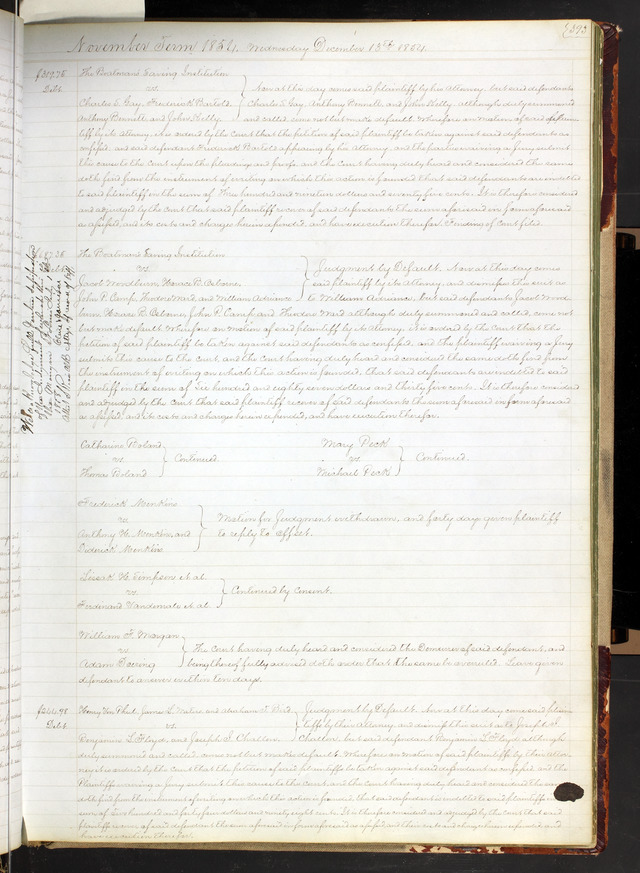 393
November Term 1854. Wednesday December 13th 1854
The Boatmens Saving Institution
vs.
Charles E. Gay, Frederick Bartold
Anthony Bennett and John Kelly
Debt
Now at this day comes said plaintiff by his Attorney, but said defendants
Charles E. Gay, Anthony Bennett and John Kelly, although duly summoned
and called, come not but make default. Wherefore on motion of said plain-
tiff by its attorney, it is ordered by the Court that the petition of said plaintiff be taken against said defendants as con-
fessed, and said defendant Frederick Bartold appearing by his attorney, and the parties waiving a jury submit
this cause to the Court upon the pleadings and proofs, and the Court having duly heard and considered the same
doth find from the instrument of writing on which this action is founded that said defendants are indebted
to said plaintiff in the sum of Three hundred and nineteen dollars and seventy five cents. It is therefore considered
and adjudged by the Court that said plaintiff recover of said defendants the sum aforesaid in form aforesaid
as assessed, and its costs and charges herein expended, and have execution therefor.
The Boatmens Saving Institution
vs.
Jacob Woodburn, Horace B. Osborne,
John P. Camp, Theodore Ward and William Adriance
Debt
Judgment by Default. Now at this day comes
said plaintiff by its attorney, and dismisses this suit as
to William Adriance, but said defendants Jacob Wood-
burn, Horace B. Osborne, John P. Camp, and Theodore Ward although duly summoned and called, come not
but make default. Wherefore on motion of said plaintiff by its Attorney, it is ordered by the Court that the
petition of said plaintiff be taken against said defendants as confessed, and the plaintiff waiving a jury
submits this cause to the Court, and the Court having duly heard and considered the same doth find from
the instrument of writing on which this action is founded, that said defendants are indebted to said
plaintiff in the sum of Six hundred and eighty seven dollars and thirty five cents. It is therefore considered
and adjudged by the Court that said plaintiff recover of said defendants the sum aforesaid in form aforesaid
as assessed, and its costs and charges herein expended, and have execution therefor.
Catharine Boland
vs
Thomas Boland
Continued
Mary Peck
vs
Michael Peck
Continued.
Frederick Menkins
vs
Anthony H. Menkins, and
Diderick Menkins
Motion for Judgment withdrawn, and forty days given plaintiff
to reply to offset.
H. Timpson et al.
vs.
Ferdinand et al.
Continued by consent.
William F. Morgan
vs
Adam
The Court having duly heard and considered the Demurrer of said defendant, and
being thereof fully advised doth order that the same be overruled. Leave given
defendant to answer within ten days.
$644.98
Debt
Henry Von Phul, James L. Waters and Abraham F.
vs.
Benjamin L. Floyd, and Joseph J. Charlton
Judgment by Default. Now at this day come said plain-
tiffs by their Attorney, and dismiss the suit as to Joseph J.
Charlton, but said defendant Benjamin L. Floyd, although
duly summoned and called, comes not but makes default. Wherefore on motion of said plaintiffs by their attor-
ney it is ordered by the Court that the petition of said plaintiffs be taken against said defendant as confessed, and the
Plaintiffs waiving a Jury submit this cause to the Court, and the Court having duly heard and considered the same
doth find from the instrument of writing on which the action is founded, that said defendant is indebted to said plaintiffs in the
sum of Six hundred and forty four dollars and ninety eight cents. It is therefore considered and adjudged by the Court that said
plaintiffs recover of said defendant the sum aforesaid in form aforesaid as assessed, and their costs and charges herein expended, and
have execution therefor.